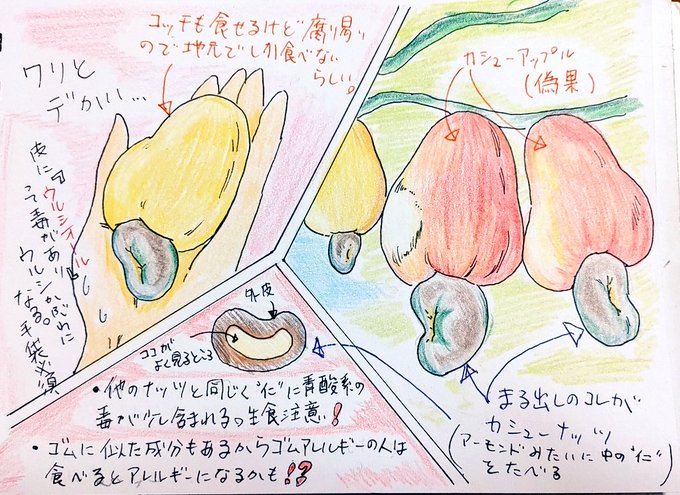 コッチも食せるけど腐り易い
ので地元でしか食べない
らしい。
ワリと
デかい…
皮に「ウルシオール」
って毒があり
ウルシかぶれに
なる。手袋必須
カシューアップル
(偽果)
外皮
ココが
よく見るところ
・他のナッツと同じく"仁"に青酸系の
毒が少し含まれるっ生食注意!
・ゴムに似た成分もあるからゴムアレルギーの人は
食べるとアレルギーになるかも!?
まる出しのコレが
カシューナッツ
(アーモンドみたいに中の"仁"
をたべる)